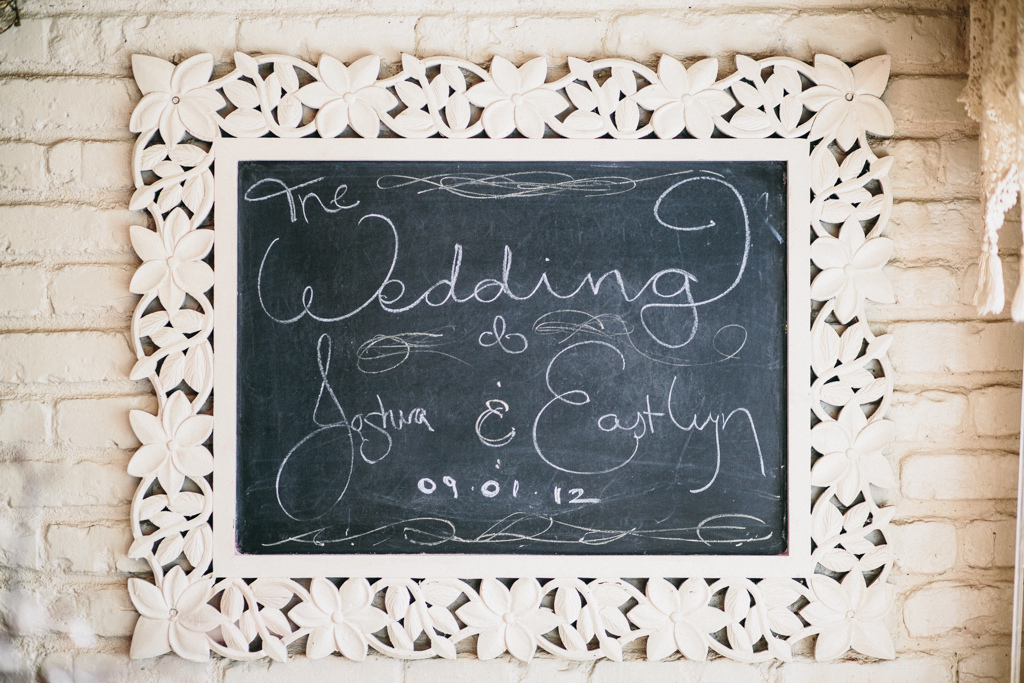 The
Wedding
of
Joshua & Eastlyn
09.01.12